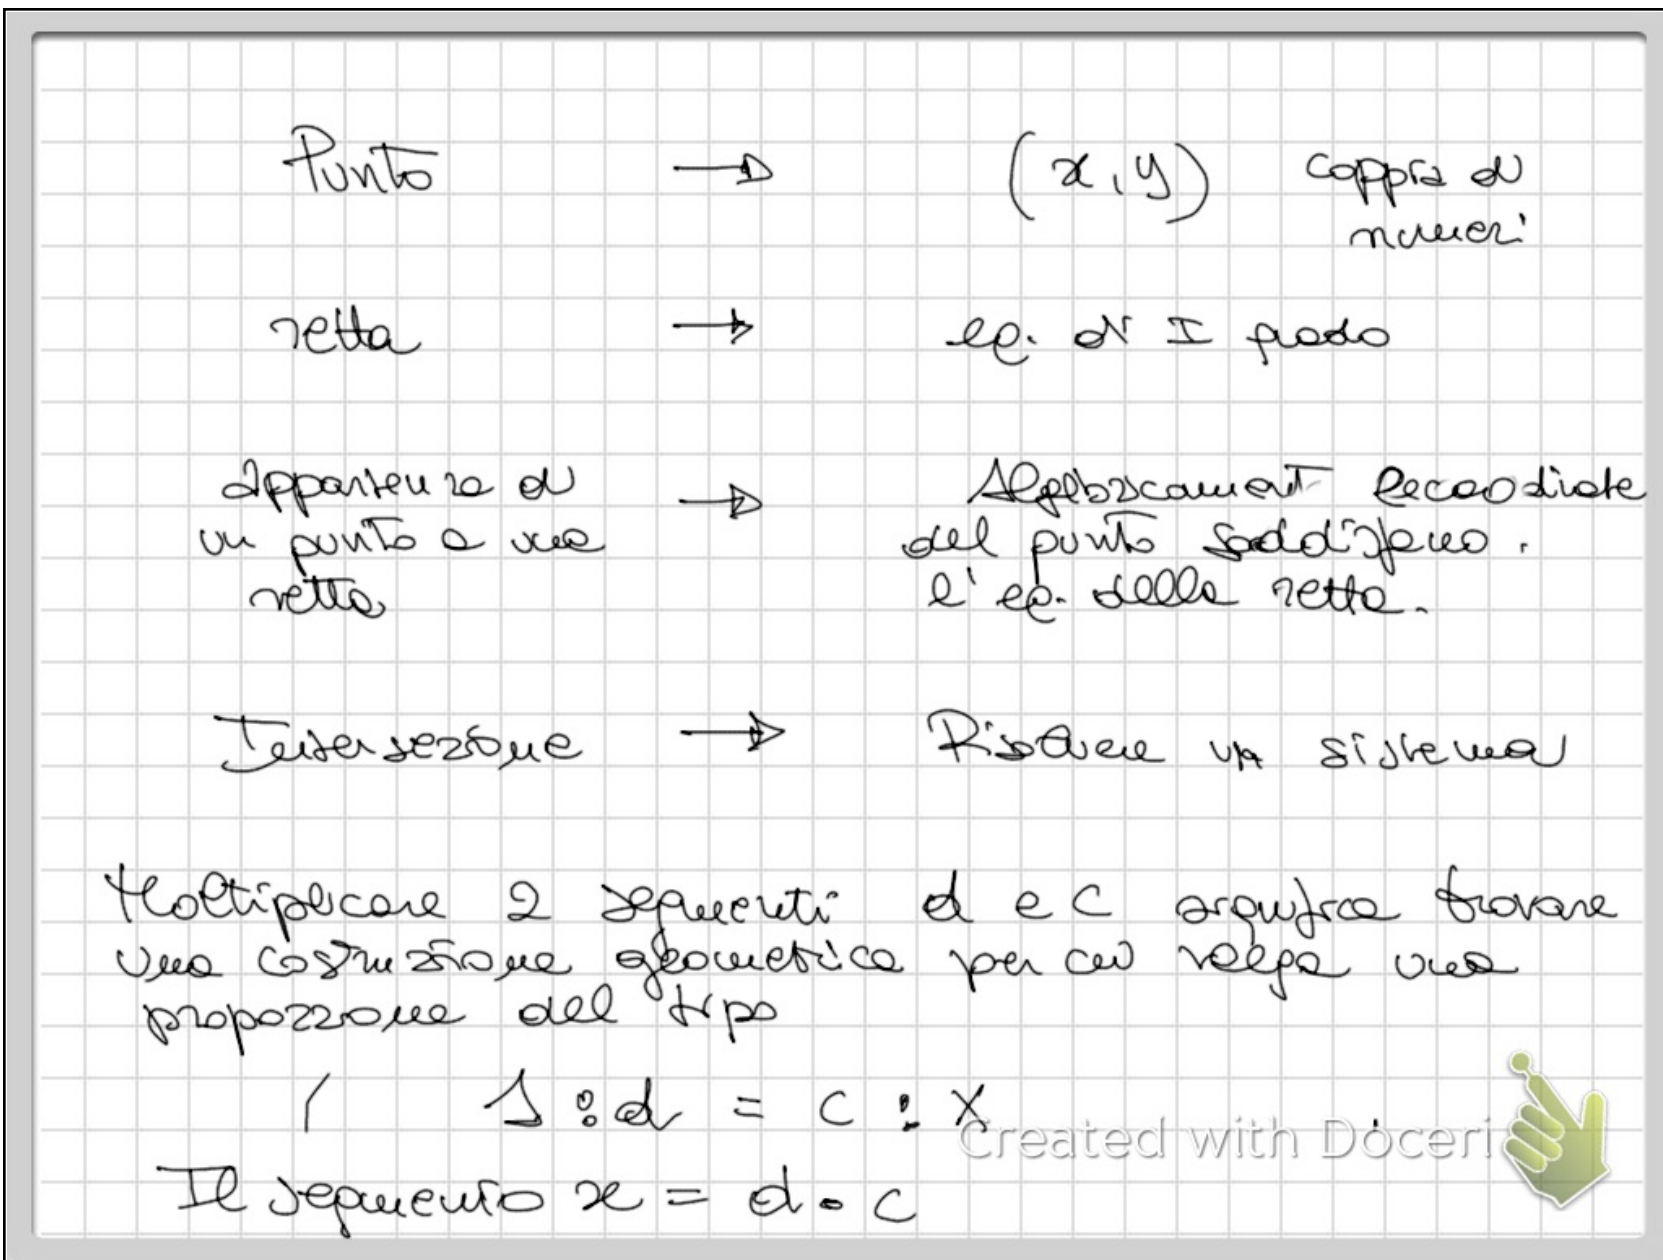 Punto → (x, y) coppia di
numeri
retta → eq. di I grado
appartenenza di → Algebricament le coordinate
un punto a una del punto soddisfano.
retta l'eq. della retta.
Intersezione → Risolvere un sistema
Moltiplicare 2 segmenti d e c significa trovare
una costruzione geometrica per cui valga una
proporzione del tipo
1 : d = c : x
Il segmento x = d • c
Created with Doceri